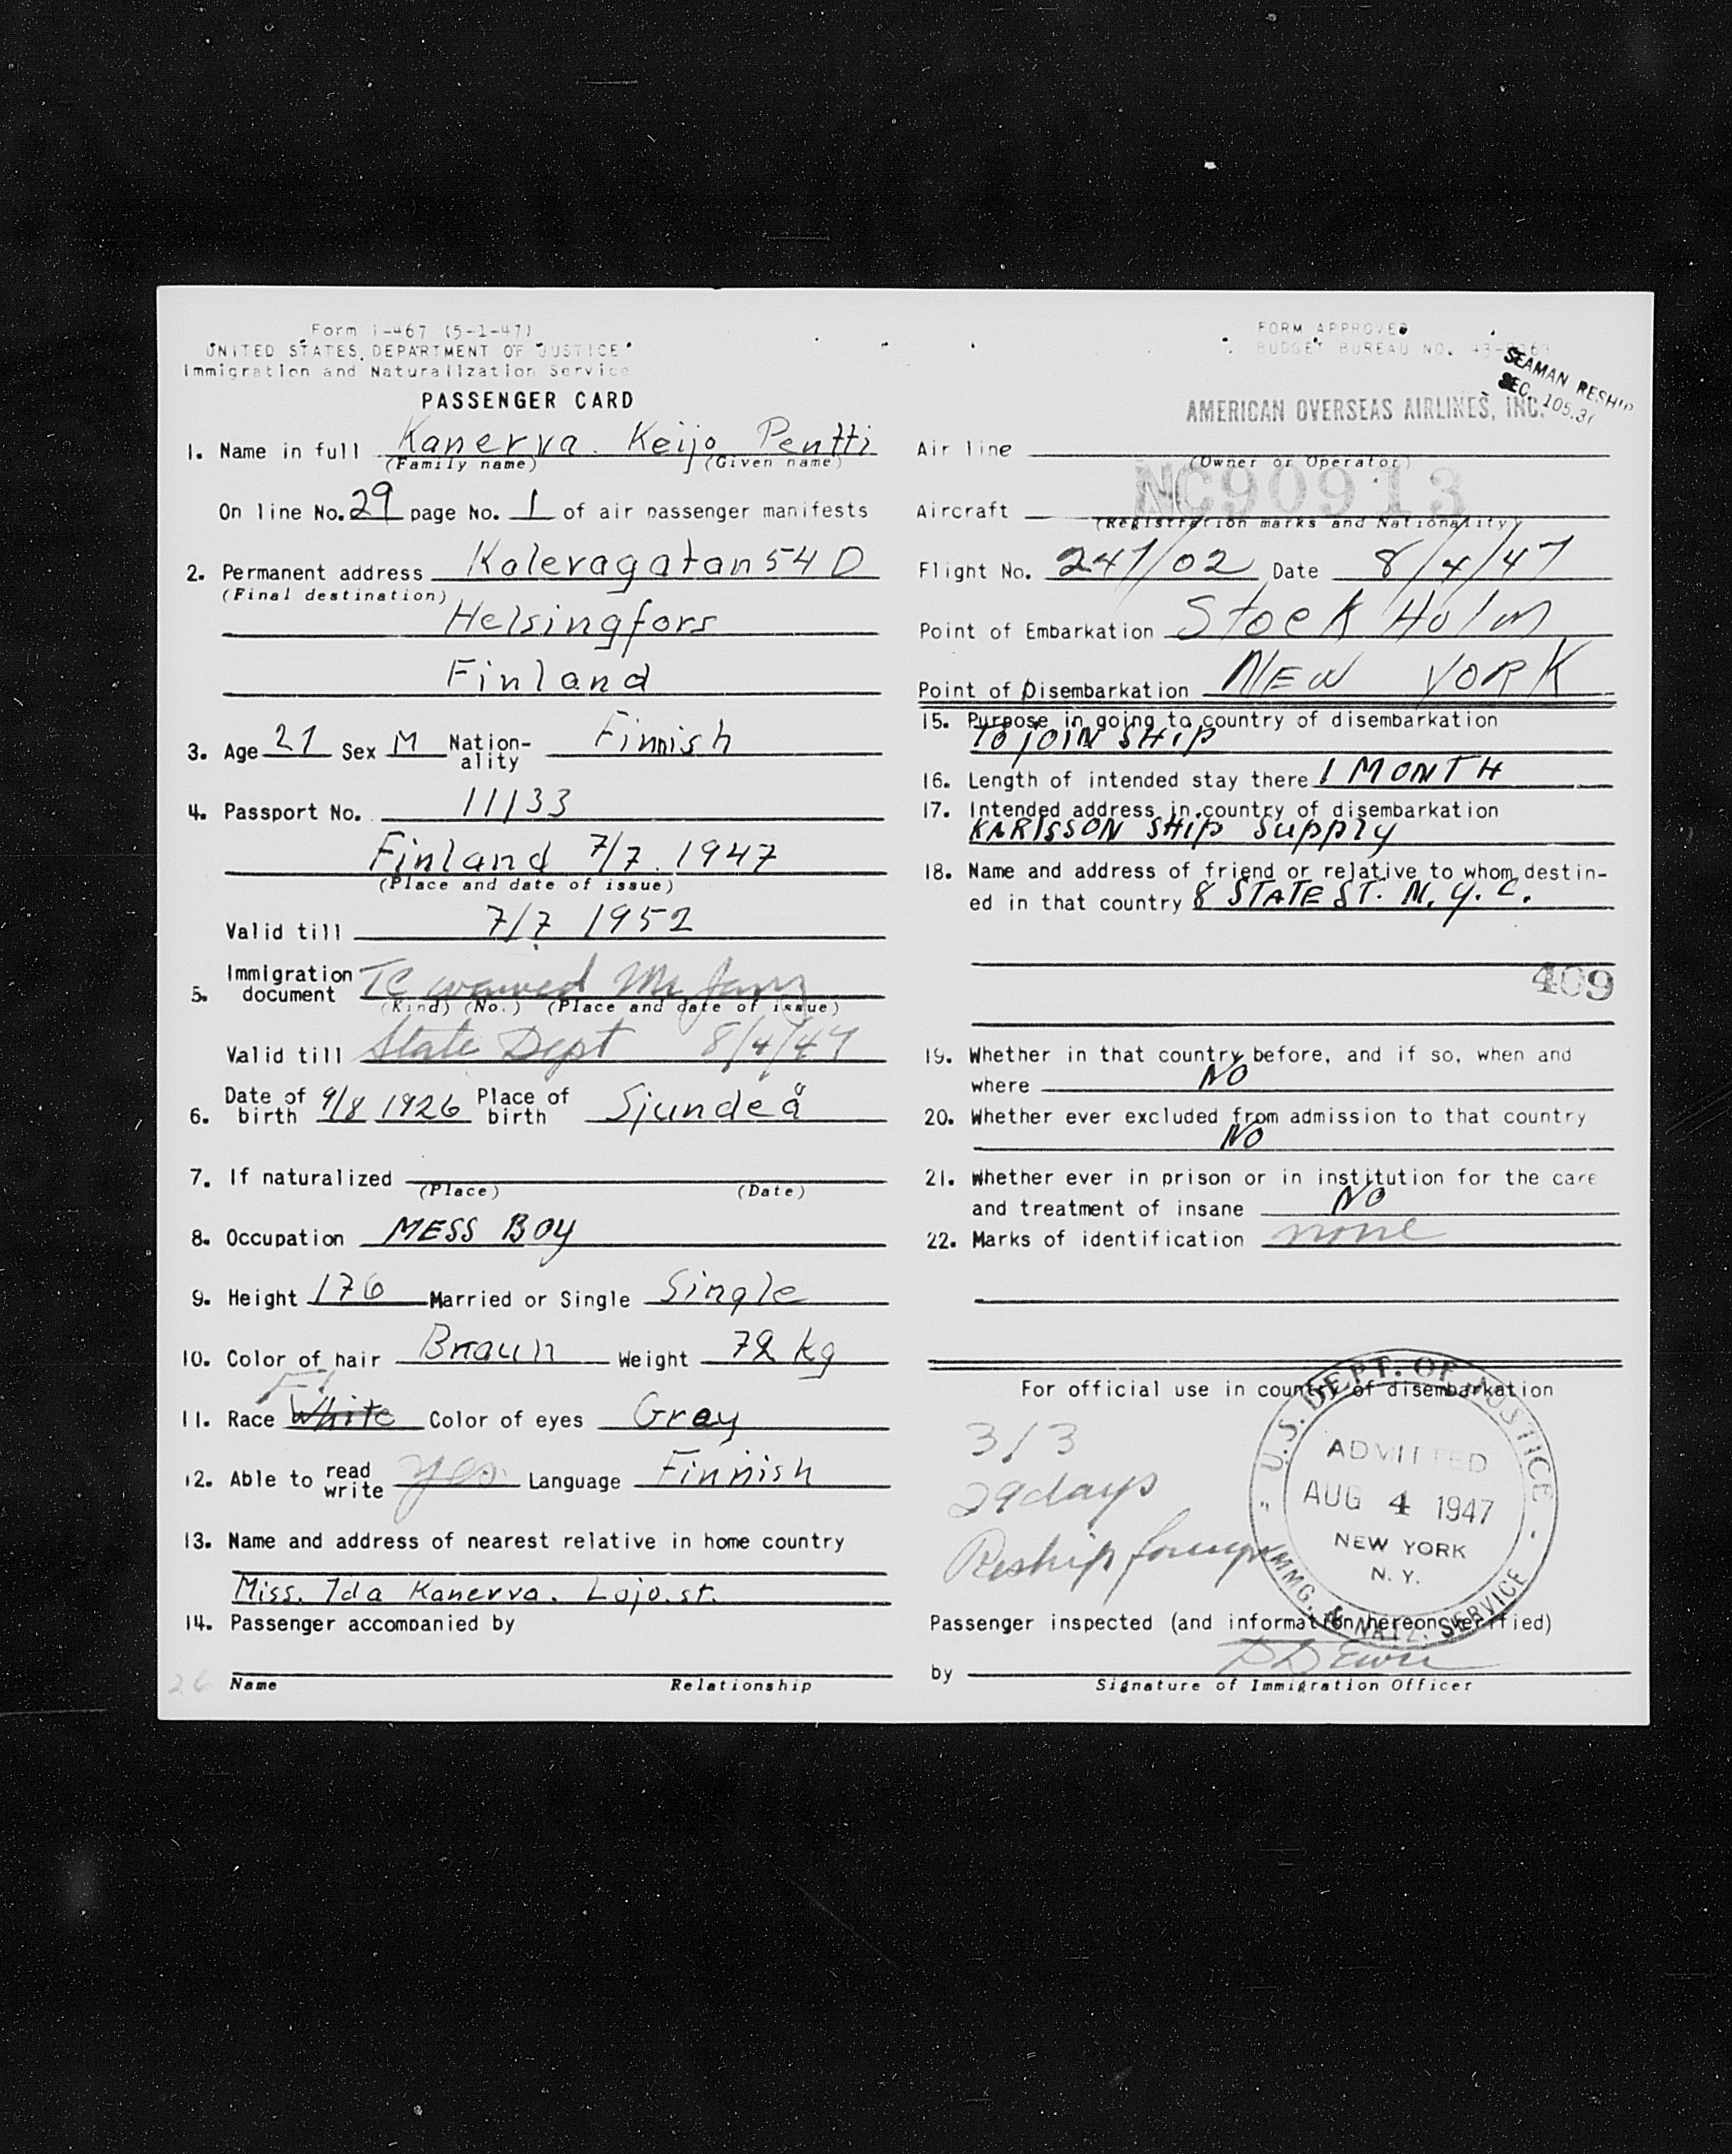 Form I-467 (5-1-47)
UNITED STATES DEPARTMENT OF JUSTICE
Immigration and Naturalization Service
PASSENGER CARD
1. Name in full Kanerva. Keijo Pentti
(Family name) (Given name)
On line No. 29 page No. 1 of air passenger manifests
2. Permanent address Kalevagatan 54 D
(Final destination)
Helsingfors
Finland
3. Age 21 Sex M Nation-ality Finnish
4. Passport No. 11133
Finland 7/7. 1947
(Place and date of issue)
Valid till 7/7 1952
5. Immigration document TC waived Mr
(Kind) (No.) (Place and date of issue)
Valid till State Dept 8/4/47
6. Date of birth 9/8 1926 Place of birth Sjundeå
7. If naturalized
(Place) (Date)
8. Occupation MESS BOY
9. Height 176 Married or Single Single
10. Color of hair Braun Weight 72 kg
11. Race White Color of eyes Gray
12. Able to read write yes Language Finnish
13. Name and address of nearest relative in home country
Miss. Ida Kanerva. Lojo. st.
14. Passenger accompanied by
26
Name Relationship
FORM APPROVED
BUDGET BUREAU NO.
SEAMAN RESHIP
SEC. 105.31
AMERICAN OVERSEAS AIRLINES, INC.
Air line
(Owner or Operator)
NC90913
Aircraft
(Registration marks and Nationality)
Flight No. 247/02 Date 8/4/47
Point of Embarkation Stock Holm
Point of Disembarkation NEW YORK
15. Purpose in going to country of disembarkation
TO JOIN SHIP
16. Length of intended stay there 1 MONTH
17. Intended address in country of disembarkation
KARLSSON SHIP SUPPLY
18. Name and address of friend or relative to whom destin-
ed in that country 8 STATE ST. N.Y.C.
409
19. Whether in that country before, and if so, when and
where NO
20. Whether ever excluded from admission to that country
NO
21. Whether ever in prison or in institution for the care
and treatment of insane NO
22. Marks of identification none
For official use in country of disembarkation
3/3
29 days
Reship
U.S. DEPT. OF JUSTICE
ADMITTED
AUG 4 1947
NEW YORK
N. Y.
IMMG. & NATZ. SERVICE
Passenger inspected (and information hereon verified)
by
Signature of Immigration Officer